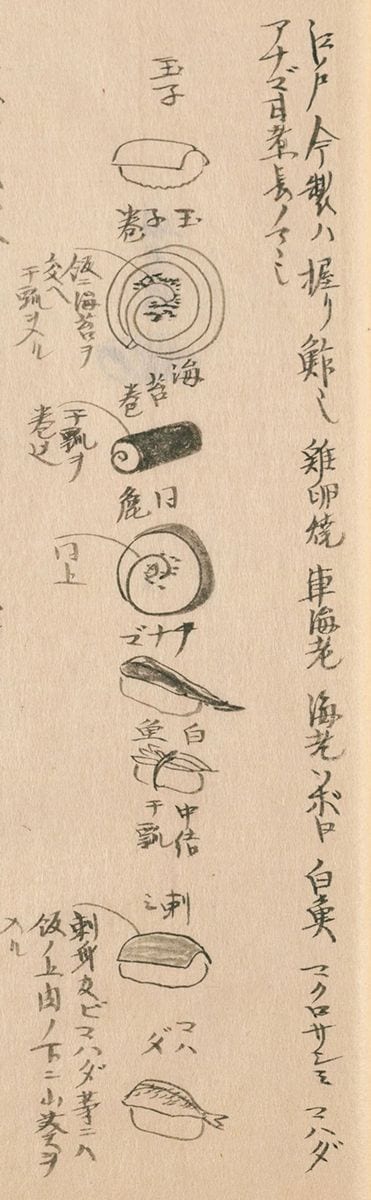 江戸今製ハ握リ鮓也 雞卵焼 車海老 海老ソボロ 白魚 マクロサシミ コハダ
アナゴ甘煮長ノマヽ也
玉子
玉子巻
飯ニ海苔ヲ
交ヘ
干瓢ヲ入ル
海苔巻
干瓢ヲ
巻込
同麁
同上
アナゴ
白魚
中結
干瓢
刺ミ
刺身及ビコハダ等ニハ
飯ノ上肉ノ下ニ山葵ヲ
入ル
コハダ